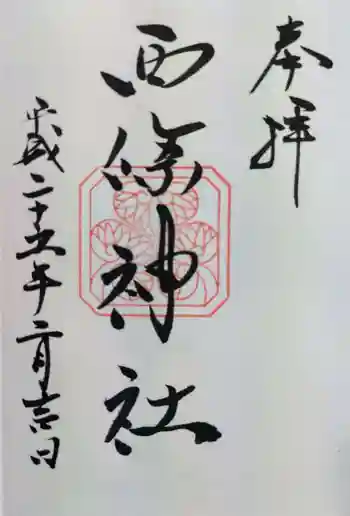 奉拝
西條神社
平成二十五年二月吉日